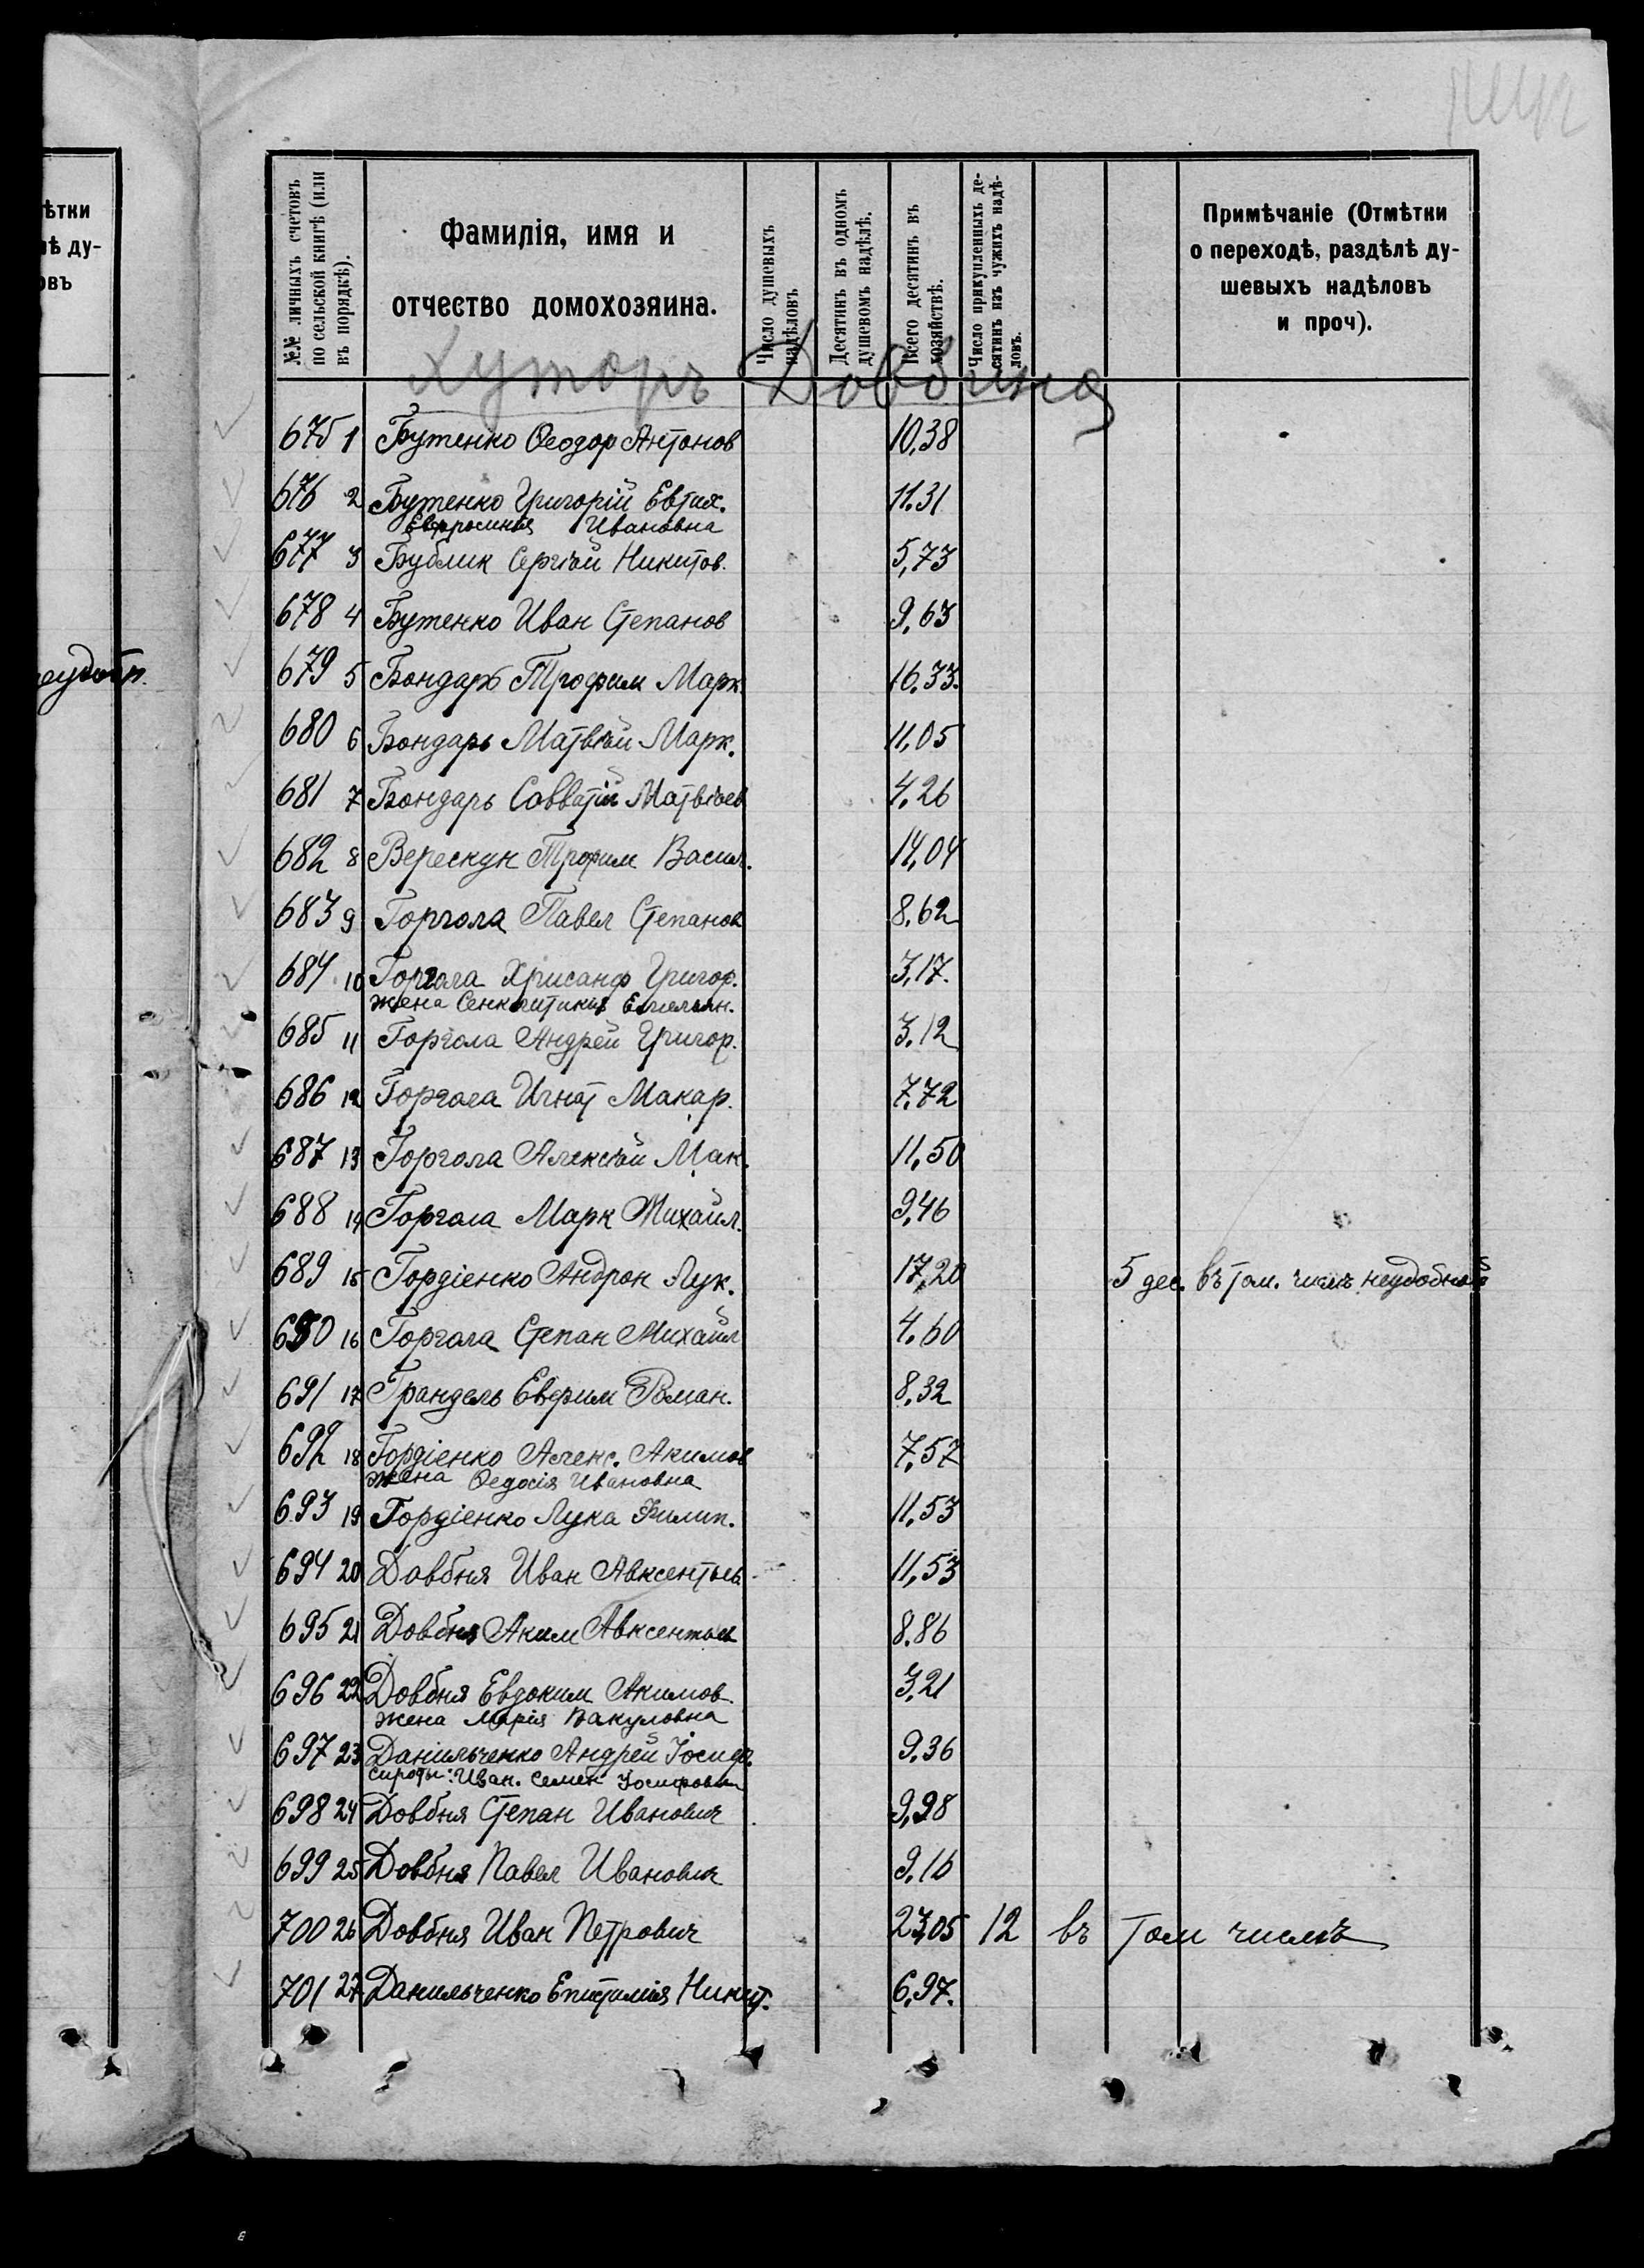 ѣтки
лѣ ду-
овъ
№№ личныхъ счетовъ по сельской книгѣ (или въ порядкѣ).
Фамилія, имя и
отчество домохозяина.
Число душевыхъ надѣловъ
Десятинъ въ одномъ душевомъ надѣлѣ.
Всего десятинъ въ хозяйствѣ.
Число прикупленныхъ десятинъ изъ чужихъ надѣловъ.
Примѣчаніе (Отмѣтки
о переходѣ, раздѣлѣ ду-
шевыхъ надѣловъ
и проч).
Хуторъ Довбина
675 1 Бутенко Ѳеодор Антонов 10,38
676 2 Бутенко Григорій Евтих. 11.31
Евфросинія Ивановна
677 3 Бублик Сергѣй Никитов. 5,73
678 4 Бутенко Иван Степанов 9,63
679 5 Бондарь Трофим Марк. 16,33.
680 6 Бондарь Матвѣй Марк. 11,05
681 7 Бондарь Савватій Матвѣев 4,26
682 8 Верескун Трофим Васил. 14,04
683 9 Горгола Павел Степанов 8,62
684 10 Горгола Хрисанф Григор. 3,17.
жена Сенклитикия Емельян.
685 11 Горгола Андрей Григор. 3.12
686 12 Горгола Игнат Макар. 7.72
687 13 Горгола Алексѣй Мак. 11,50
688 14 Горгола Марк Михайл. 9,46
689 15 Гордіенко Андрон Лук. 17,20 5 дес. въ том. числѣ неудобной
690 16 Горгола Степан Михайл 4.60
691 17 Грандель Евфим Роман. 8,32
692 18 Гордіенко Алекс. Акимов 7,57
жена Ѳедосія Ивановна
693 19 Гордіенко Лука Филип. 11,53
694 20 Довбня Иван Авксентьев 11,53
695 21 Довбня Аким Авксентьев 8.86
696 22 Довбня Евдоким Акимов 3,21
жена Марія Вакуловна
697 23 Данильченко Андрей Іосиф. 9,36
сироты: Иван. Семен Іосифович
698 24 Довбня Степан Иванович 9,98
699 25 Довбня Павел Иванович 9,16
700 26 Довбня Иван Петрович 23,05 12 въ том числѣ
701 27 Данильченко Епистимія Никит. 6,97.